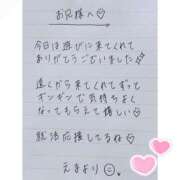 お兄様へ♡
今日は遊びに来てくれて
ありがとうございました
遠くから来てくれてずって
ギンギンで気持ちよく
なってもらえて嬉しい♡
就活応援してるね♡
えまより